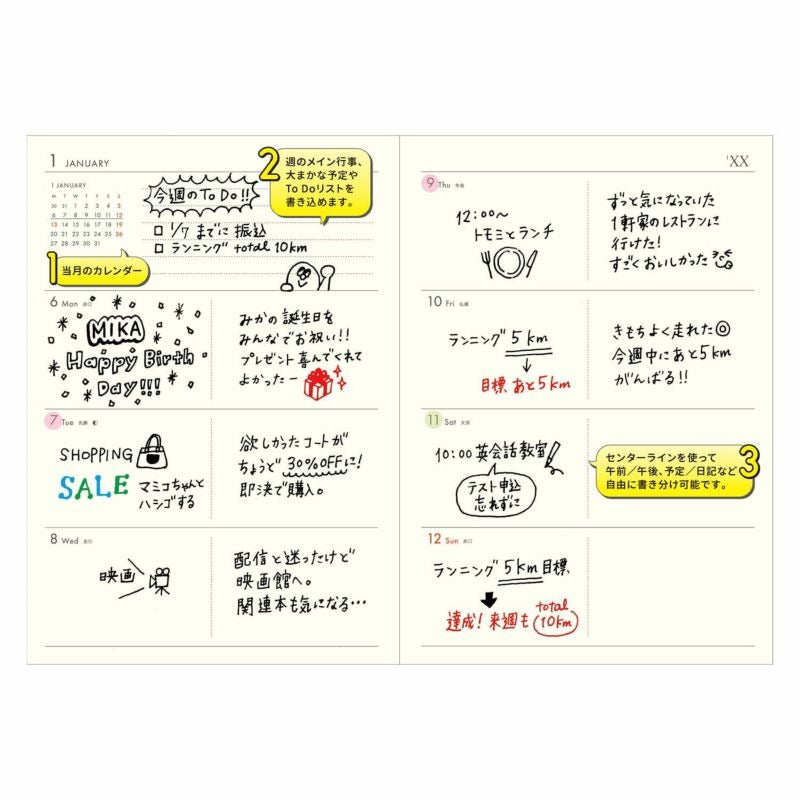 1 JANUARY
1 JANUARY
M T W T F S S
30 31 1 2 3 4 5
6 7 8 9 10 11 12
13 14 15 16 17 18 19
20 21 22 23 24 25 26
27 28 29 30 31
今週のTo Do!!
□ 1/7 までに 振込
□ ランニング total 10km
1 当月のカレンダー
2 週のメイン行事、
大まかな予定や
To Doリストを
書き込めます。
6 Mon 赤口
MIKA
Happy Birth
Day!!!
みかの誕生日を
みんなでお祝い!!
プレゼント喜んでくれて
よかったー
7 Tue 先勝
SHOPPING
SALE マミコちゃんと
ハシゴする
欲しかったコートが
ちょうど 30%OFFに!
即決で購入。
8 Wed 友引
映画
配信と迷ったけど
映画館へ。
関連本も気になる…
'XX
9 Thu 先負
12:00〜
トモミとランチ
ずっと気になっていた
1軒家のレストランに
行けた!
すごくおいしかった
10 Fri 仏滅
ランニング 5km
目標 あと5km
きもちよく走れた◎
今週中にあと5km
がんばる!!
11 Sat 大安
10:00 英会話教室
テスト申込
忘れずに
センターラインを使って
午前/午後、予定/日記など
自由に書き分け可能です。 3
12 Sun 赤口
ランニング 5km 目標
達成! 来週も total
10km